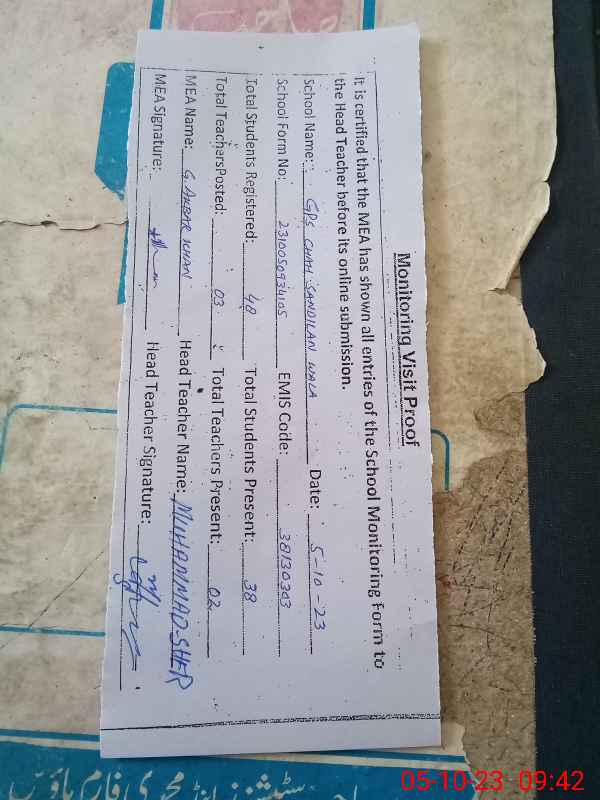 Monitoring Visit Proof
It is certified that the MEA has shown all entries of the School Monitoring Form to
the Head Teacher before its online submission.
School Name: GPS CHAH SANDILAN WALA Date: 5-10-23
School Form No: 2310050934105 EMIS Code: 38130303
Total Students Registered: 48 Total Students Present: 38
Total TeachersPosted: 03 Total Teachers Present: 02
MEA Name: G. AKBAR KHAN Head Teacher Name: MUHAMMAD SHER
MEA Signature: Head Teacher Signature:
05-10-23 09:42